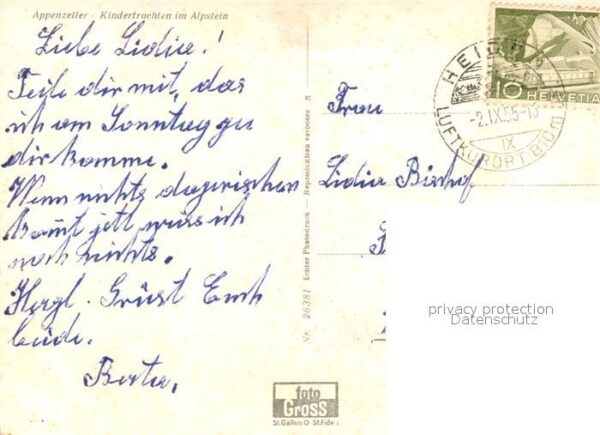 Appenzeller - Kindertrachten im Alpstein
Liebe Lidia!
Teile dir mit, das
ich am Sonntag zu
dir komme.
Wenn nichts dazwischen
kommt jetz weiss ich
noch nichts.
Herzl. Grüsst Euch
beide.
Berta.
Nr. 26381 Echter Photodruck - Reproduktion verboten
foto
Gross
St.Gallen O St.Fide
Frau
Lidia Bischof
HEID
-2.IX.55-13
IX
LUFTKURORT 810 m
10 HELVETIA
privacy protection
Datenschutz